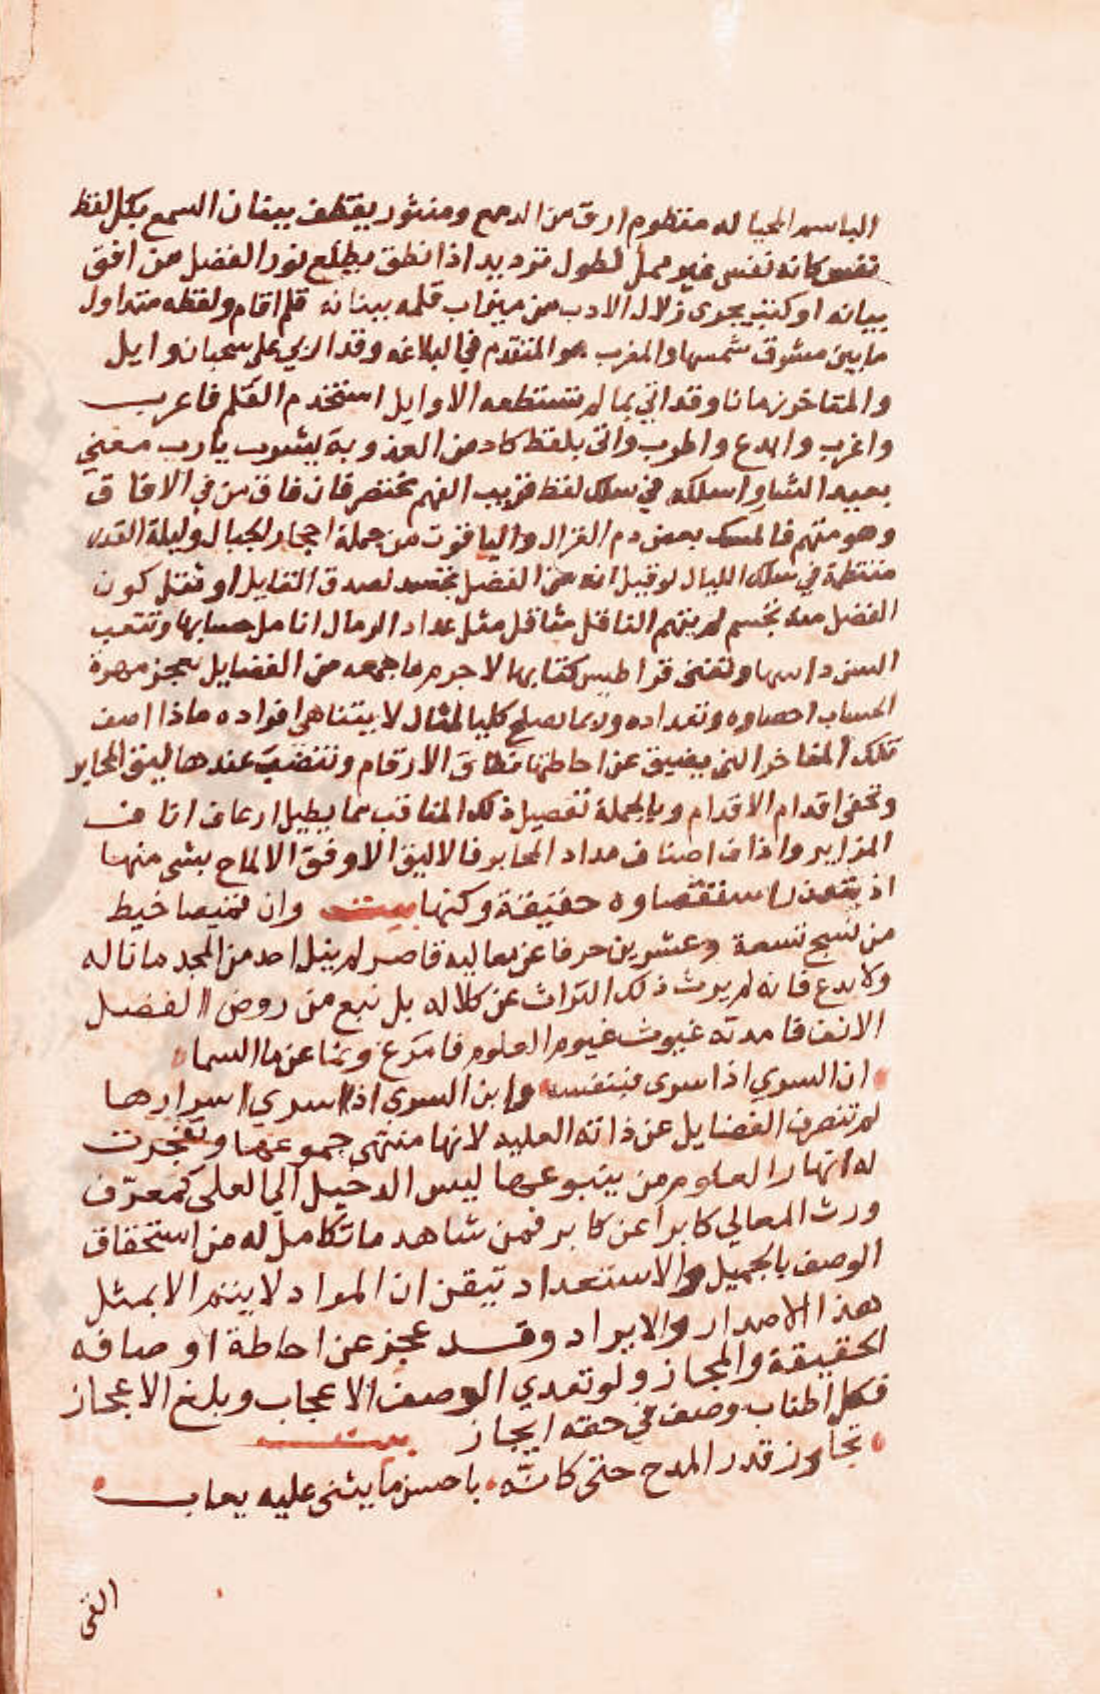 الباسم المحيا له منظوم ارق من الدمع ومنثور يقتطف ببنان السمع بكل لفظ
نفيس كانه نفس غير ممل لطول ترديد اذا نطق يطلع نور الفضل من افق
بيانه او كتب يجرى زلال الادب من ميزاب قلمه ببنانه قلم اقام ولفظه متداول
ما بين مشرق شمسها والمغرب هو المتقدم في البلاغه وقد اربي على سحبان وايل
والمتاخر زمانا وقد اتي بما لم تستطعه الاوايل استخدم القلم فاعرب
واغرب وابدع واطرب واتى بلفظ كاد من العذوبة يشرب يارب معني
بعيد الشاو اسلكه في سلك لفظ قريب الفهم مختصر فان فاق من في الافاق
وهو منهم فالمسك بعض دم الغزال والياقوت من جملة احجار الجبال وليلة القدر
منتظمة في سلك الليال لو قيل انه من الفضل تجسد لصدق القايل او نقل كون
الفضل منه تجسم لم يتهم الناقل مناقل مثل عداد الرمال انامل حسابها وتتعب
السن دارسها وتفنى قراطيس كتابها لا جرم ما جمعه من الفضايل يعجز مهرة
الحساب احصاوه وتعداده وربما يصلح كليا لمثال لا يتناهى افراده ماذا اصف
تلك المفاخر التي يضيق عن احاطتها نطاق الارقام وتنضب عندها ليق المحابر
وتحفى اقدام الاقدام وبالجملة تفصيل ذلك المناقب مما يطيل ارعاف اناف
المزابر واذاف اصناف مداد المحابر فالاليق الاوفق الالماح بشى منها
اذ يتعذر استقصاوه حقيقة وكنها بيت وان قميصا خيط
من نسج تسعة وعشرين حرفا عن معاليه قاصر لم ينل احد من المجد ما ناله
ولا بدع فانه لم يرث ذلك التراث عن كلاله بل نبع من روض الفضل
الانف فامدته غيوث غيوم العلوم فامرع ونما عن ما السما
ان السري اذا سرى فبنفسه وابن السرى اذا سري اسراهما
لم تنصرف الفضايل عن ذاته العليه لانها منتهى جموعها وتفجرت
له انهار العلوم من ينبوعها ليس الدخيل الي العلى كمعرّف
ورث المعالي كابرا عن كابر فمن شاهد ما تكامل له من استحقاق
الوصف بالجميل والاستعداد تيقن ان المواد لا يتم الا بمثل
هذا الاصدار والايراد وقد عجز عن احاطة اوصافه
الحقيقة والمجاز ولو تعدي الوصف الاعجاب وبلغ الاعجاز
فكل اطناب وصف في حقه ايجاز بيت
تجاوز قدر المدح حتى كانّه باحسن ما يثنى عليه يعاب
الفى